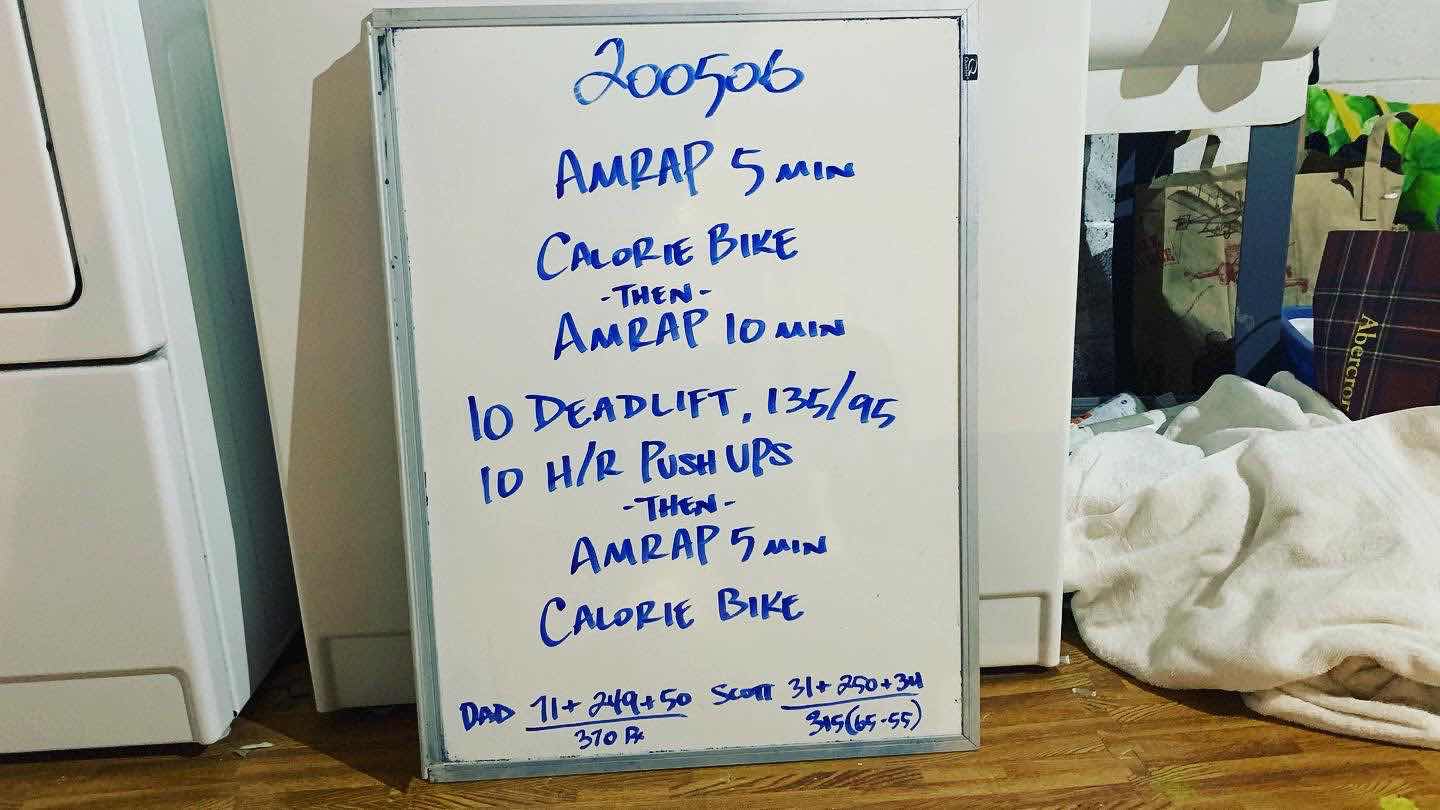 200506
AMRAP 5 MIN
CALORIE BIKE
-THEN-
AMRAP 10 MIN
10 DEADLIFT, 135/95
10 H/R PUSH UPS
-THEN-
AMRAP 5 MIN
CALORIE BIKE
DAD 71+ 249+50 SCOTT 31+ 250+34
370 Rx 315(65-55)
Abercrom